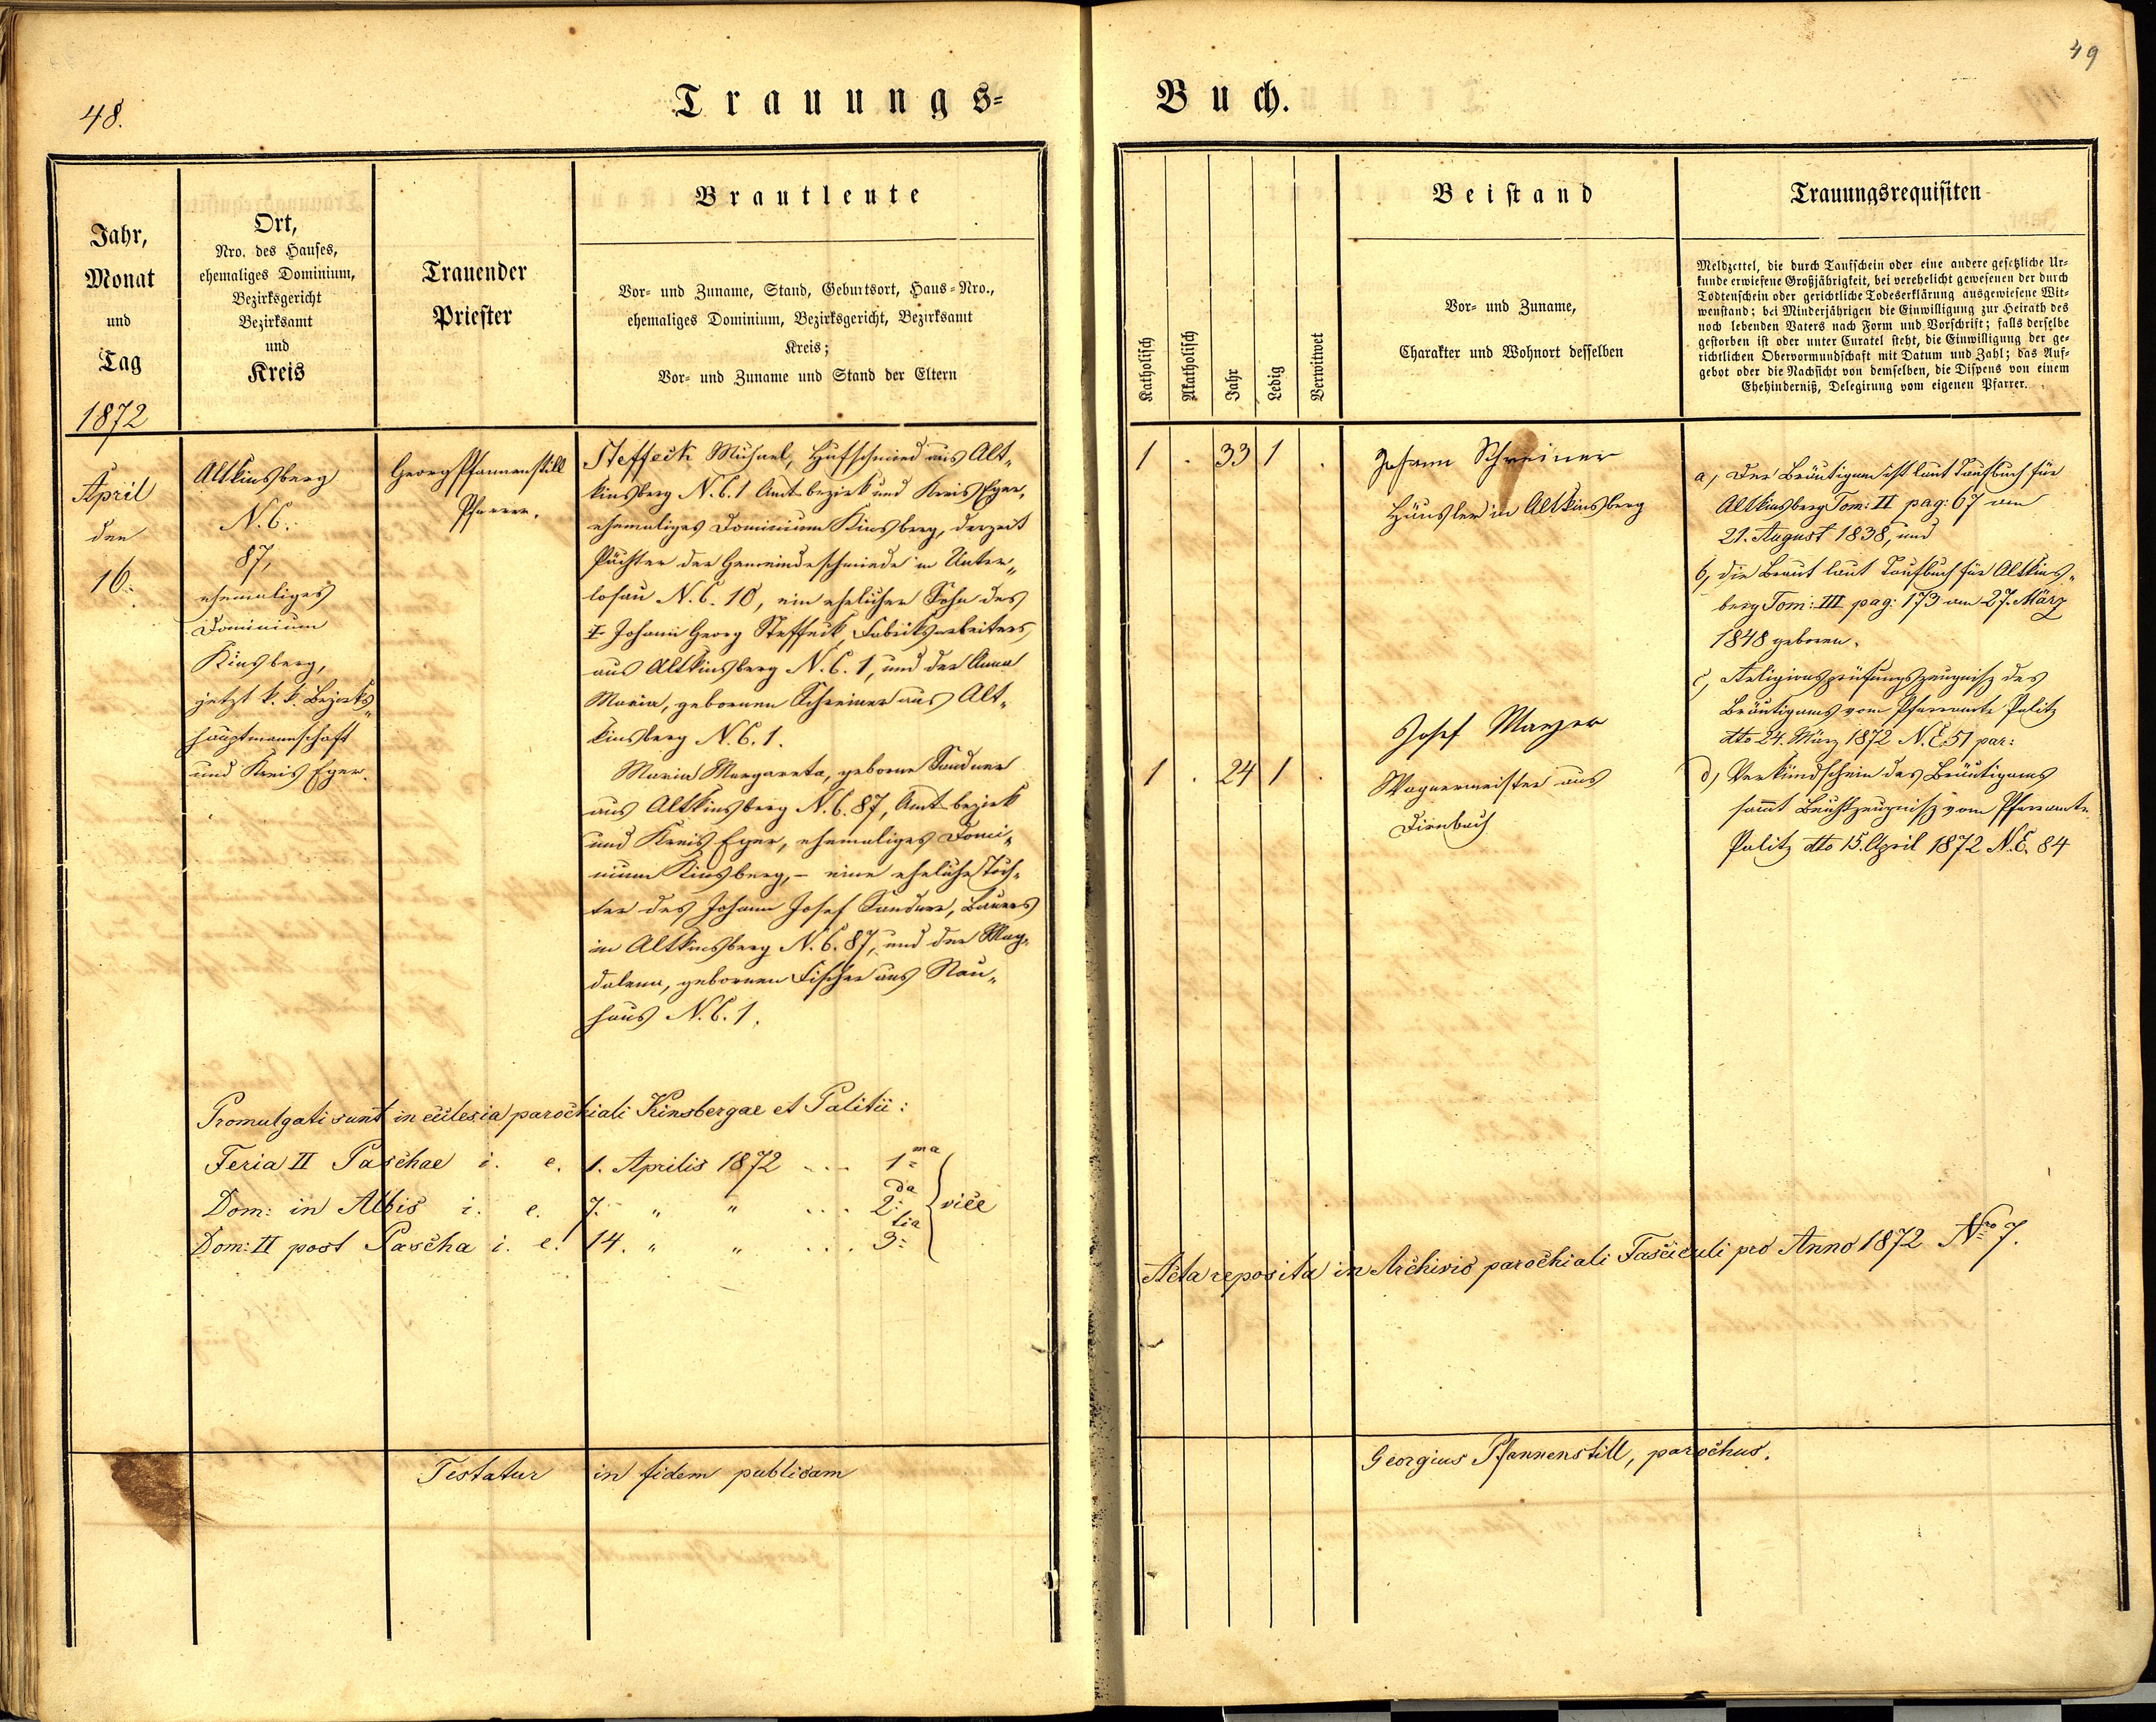 48.
Trauungs=
Jahr,
Monat
und
Tag
1872
Ort,
Nro. des Hauses,
ehemaliges Dominium,
Bezirksgericht
Bezirksamt
und
Kreis
Trauender
Priester
Brautleute
Vor= und Zuname, Stand, Geburtsort, Haus=Nro.,
ehemaliges Dominium, Bezirksgericht, Bezirksamt
Kreis;
Vor= und Zuname und Stand der Eltern
April
den
16.
Altkinsberg
N. C.
87,
ehemaliges
Dominium
Kinsberg,
jetzt k. k. Bezirks„
hauptmannschaft
und Kreis Eger.
Georg Pfannenstill
Pfarrer.
Steffeck Michael, Hufschmied aus Alt„
kinsberg N. C. 1 Amtsbezirk und Kreis Eger,
ehemaliges Dominium Kinsberg, derzeit
Pächter der Gemeindeschmiede in Unter„
losau N. C. 10, ein ehelicher Sohn des
‡ Johann Georg Steffeck, Fabriksarbeiters
aus Altkinsberg N. C. 1, und der Anna
Maria, gebornen Schreiner aus Alt„
kinsberg N. C. 1.
Maria Margareta, geborne Sandner
aus Altkinsberg N. C. 87, Amtsbezirk
und Kreis Eger, ehemaliges Domi„
nium Kinsberg, – eine eheliche Toch„
ter des Johann Josef Sandner, Bauers
in Altkinsberg N. C. 87, und der Mag„
dalena, gebornen Fischer aus
haus N. C. 1.
Promulgati sunt in ecclesia parochiali Kinsbergae et Palitii:
Feria II Paschae i. e. 1. Aprilis 1872 ... 1ma
Dom: in Albis i. e. 7. „ „ ... 2da vice
Dom: II post Pascha i. e. 14. „ „ ... 3tia
Testatur in fidem publicam
49
Buch.
Katholisch
Akatholisch
Jahr
Ledig
Verwitwet
Beistand
Vor= und Zuname,
Charakter und Wohnort desselben
Trauungsrequisiten
Meldzettel, die durch Taufschein oder eine andere gesetzliche Ur=
kunde erwiesene Großjährigkeit, bei verehelicht gewesenen der durch
Todtenschein oder gerichtliche Todeserklärung ausgewiesene Wit=
wenstand; bei Minderjährigen die Einwilligung zur Heirath des
noch lebenden Vaters nach Form und Vorschrift; falls derselbe
gestorben ist oder unter Curatel steht, die Einwilligung der ge=
richtlichen Obervormundschaft mit Datum und Zahl; das Auf=
gebot oder die Nachsicht von demselben, die Dispens von einem
Ehehinderniß, Delegirung vom eigenen Pfarrer.
1 . 33 1 .
Johann Schreiner
Häusler in Altkinsberg
1 . 24 1 .
Josef Mayer
Wagnermeister aus
Dirnbach
a, Der Bräutigam ist laut Taufbuch für
Altkinsberg Tom: II pag: 67 am
21. August 1838, und
b, die Braut laut Taufbuch für Altkins„
berg Tom: III pag: 173 am 27. März
1848 geboren.
c, Religionsprüfungszeugniß des
Bräutigams vom Pfarramte Palitz
dto 24. März 1872 N. E. 51 par:
d, Verkündschein des Bräutigams
sammt Beichtzeugniß vom Pfarramte
Palitz dto 15. April 1872 N. E. 84
Acta reposita in Archivio parochiali Fasciculi pro Anno 1872 Nro 7.
Georgius Pfannenstill, parochus.